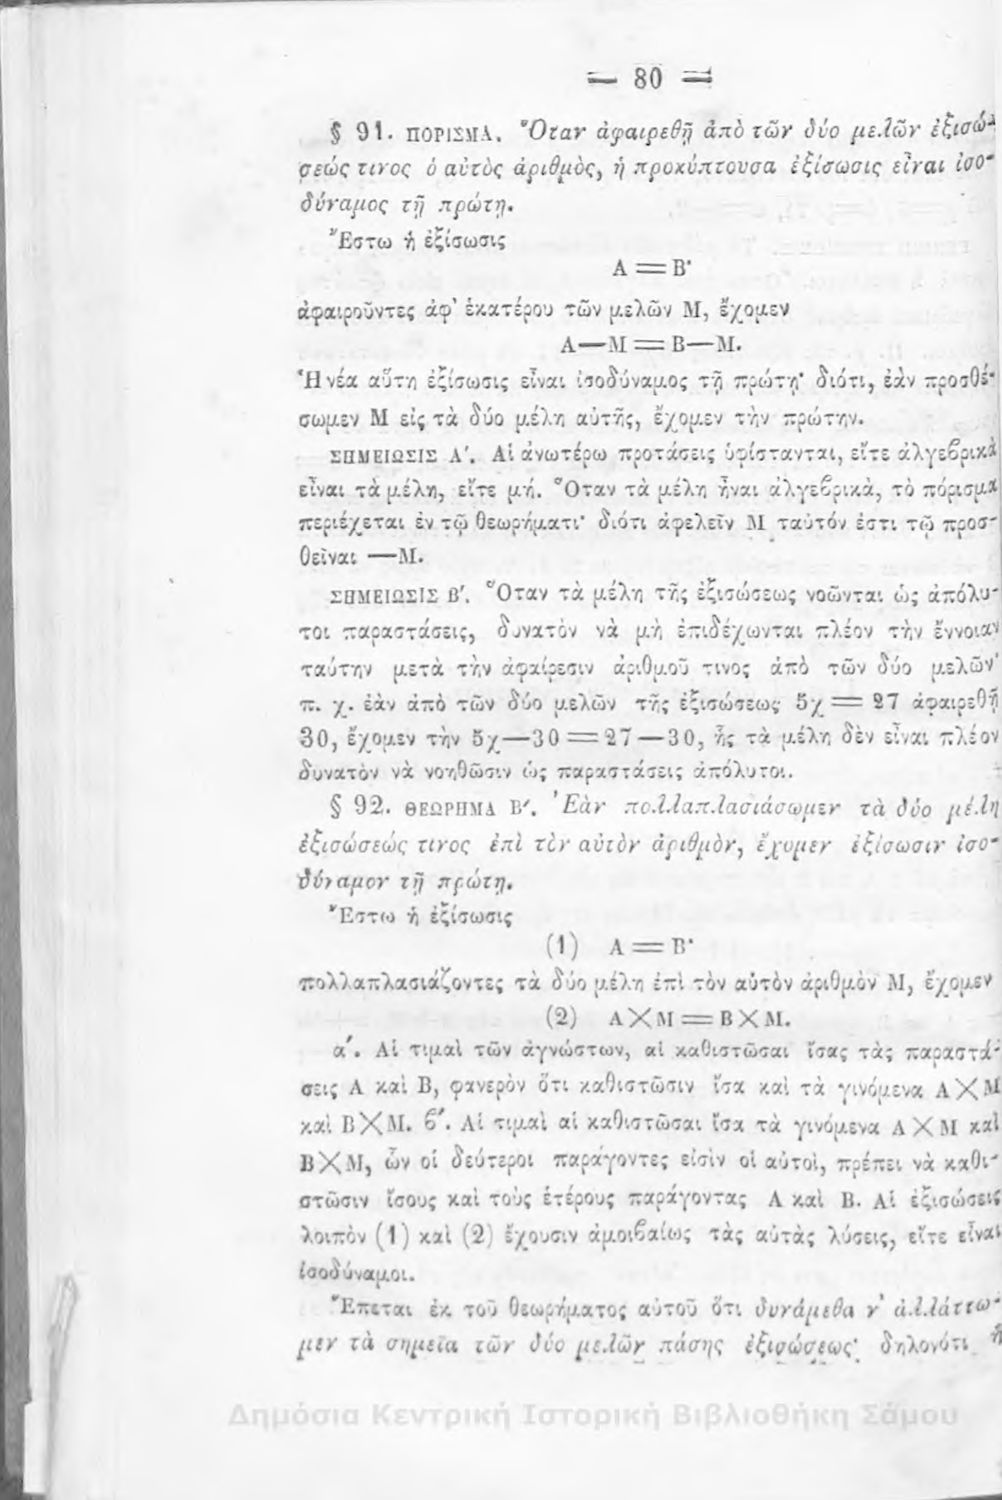 — 80 —
§ 91. ΠΟΡΙΣΜΑ. Ὅταν ἀφαιρεθῇ ἀπὸ τῶν δύο μελῶν ἐξισώ-
σεώς τινος ὁ αὐτὸς ἀριθμὸς, ἡ προκύπτουσα ἐξίσωσις εἶναι ἰσο-
δύναμος τῇ πρώτῃ.
Ἔστω ἡ ἐξίσωσις
Α = Β·
ἀφαιροῦντες ἀφ' ἑκατέρου τῶν μελῶν Μ, ἔχομεν
Α—Μ = Β—Μ.
Ἡ νέα αὕτη ἐξίσωσις εἶναι ἰσοδύναμος τῇ πρώτῃ· διότι, ἐὰν προσθέ-
σωμεν Μ εἰς τὰ δύο μέλη αὐτῆς, ἔχομεν τὴν πρώτην.
ΣΗΜΕΙΩΣΙΣ Α'. Αἱ ἀνωτέρω προτάσεις ὑφίστανται, εἴτε ἀλγεβρικὰ
εἶναι τὰ μέλη, εἴτε μή. Ὅταν τὰ μέλη ἦναι ἀλγεβρικὰ, τὸ πόρισμα
περιέχεται ἐν τῷ θεωρήματι· διότι ἀφελεῖν Μ ταὐτόν ἐστι τῷ προσ-
θεῖναι —Μ.
ΣΗΜΕΙΩΣΙΣ Β'. Ὅταν τὰ μέλη τῆς ἐξισώσεως νοῶνται ὡς ἀπόλυ-
τοι παραστάσεις, δυνατὸν νὰ μὴ ἐπιδέχωνται πλέον τὴν ἔννοιαν
ταύτην μετὰ τὴν ἀφαίρεσιν ἀριθμοῦ τινος ἀπὸ τῶν δύο μελῶν·
π. χ. ἐὰν ἀπὸ τῶν δύο μελῶν τῆς ἐξισώσεως 5χ = 27 ἀφαιρεθῇ
30, ἔχομεν τὴν 5χ—30 = 27—30, ἧς τὰ μέλη δὲν εἶναι πλέον
δυνατὸν νὰ νοηθῶσιν ὡς παραστάσεις ἀπόλυτοι.
§ 92. ΘΕΩΡΗΜΑ Β'. Ἐὰν πολλαπλασιάσωμεν τὰ δύο μέλη
ἐξισώσεώς τινος ἐπὶ τὸν αὐτὸν ἀριθμὸν, ἔχομεν ἐξίσωσιν ἰσο-
δύναμον τῇ πρώτῃ.
Ἔστω ἡ ἐξίσωσις
(1) Α = Β·
πολλαπλασιάζοντες τὰ δύο μέλη ἐπὶ τὸν αὐτὸν ἀριθμὸν Μ, ἔχομεν
(2) Α×Μ = Β×Μ.
α'. Αἱ τιμαὶ τῶν ἀγνώστων, αἱ καθιστῶσαι ἴσας τὰς παραστά-
σεις Α καὶ Β, φανερὸν ὅτι καθιστῶσιν ἴσα καὶ τὰ γινόμενα Α×Μ
καὶ Β×Μ. β'. Αἱ τιμαὶ αἱ καθιστῶσαι ἴσα τὰ γινόμενα Α×Μ καὶ
Β×Μ, ὧν οἱ δεύτεροι παράγοντες εἰσὶν οἱ αὐτοὶ, πρέπει νὰ καθι-
στῶσιν ἴσους καὶ τοὺς ἑτέρους παράγοντας Α καὶ Β. Αἱ ἐξισώσεις
λοιπὸν (1) καὶ (2) ἔχουσιν ἀμοιβαίως τὰς αὐτὰς λύσεις, εἴτε εἶναι
ἰσοδύναμοι.
Ἕπεται ἐκ τοῦ θεωρήματος αὐτοῦ ὅτι δυνάμεθα ν' ἀλλάττω-
μεν τὰ σημεῖα τῶν δύο μελῶν πάσης ἐξισώσεως· δηλονότι ἡ
Δημόσια Κεντρική Ιστορική Βιβλιοθήκη Σάμου